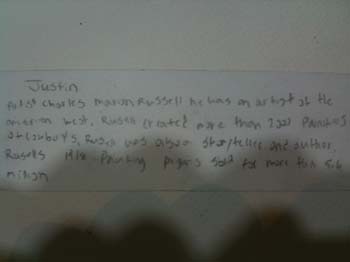 Justin
Charles marion Russell he was an artist of the
american west. Russell created more than 2000 Paintings
of cowboys, Russell was also a storyteller and author.
Rusells 1918 Painting piegans sold for more than 5.6
million